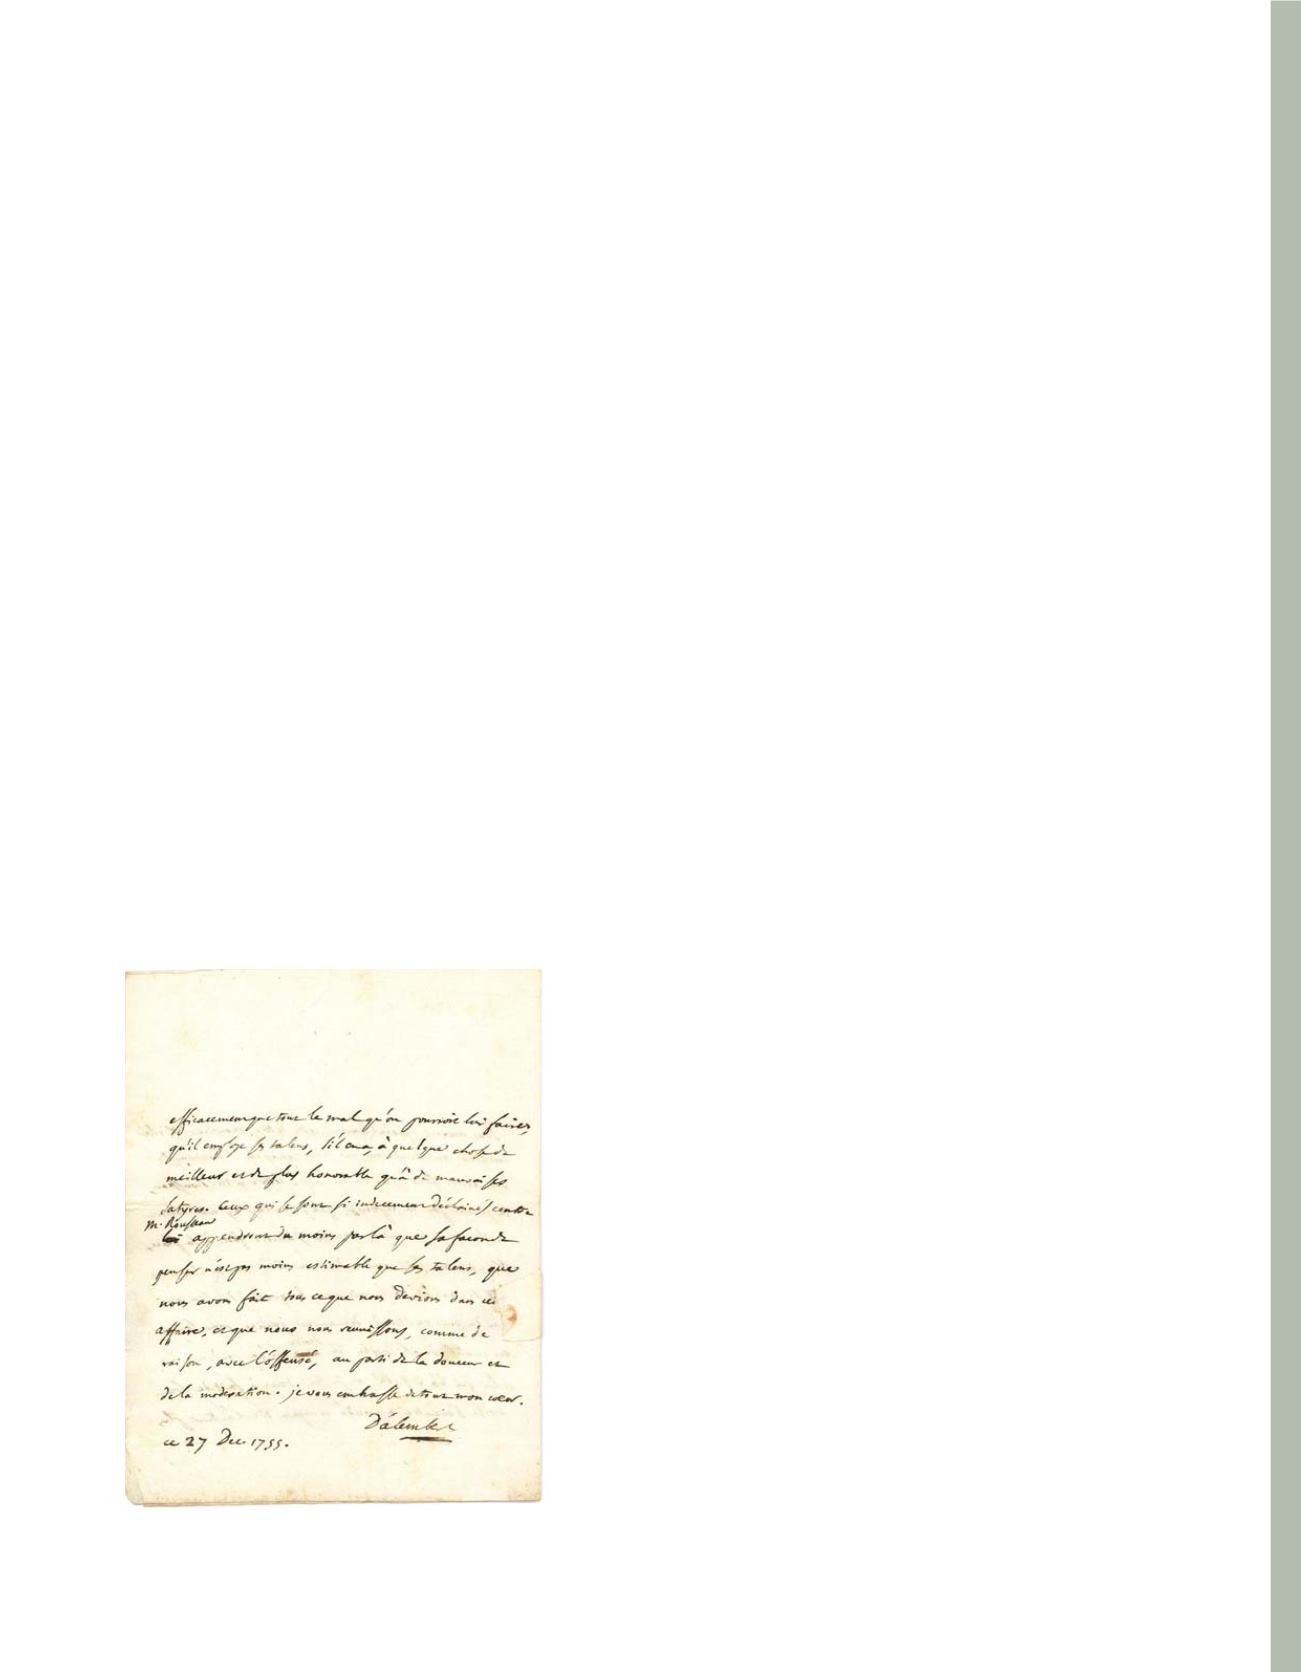 efficacement que tout le mal qu'on pourroit lui faire,
qu'il employe ses talens, s'il en a, à quelque chose de
meilleur et de plus honorable qu'à de mauvaises
satyres. Ceux qui se sont si indecemment déchainés contre
M. Rousseau
lui apprendront du moins par là que sa facon de
penser n'est pas moins estimable que ses talens, que
nous avons fait tous ce que nous devions dans cette
affaire, et que nous nous reunissons, comme de
raison, avec l'offensé, au parti de la douceur et
de la moderation. je vous embrasse de tout mon cœur.
D'alembert
ce 27 Dec. 1755.